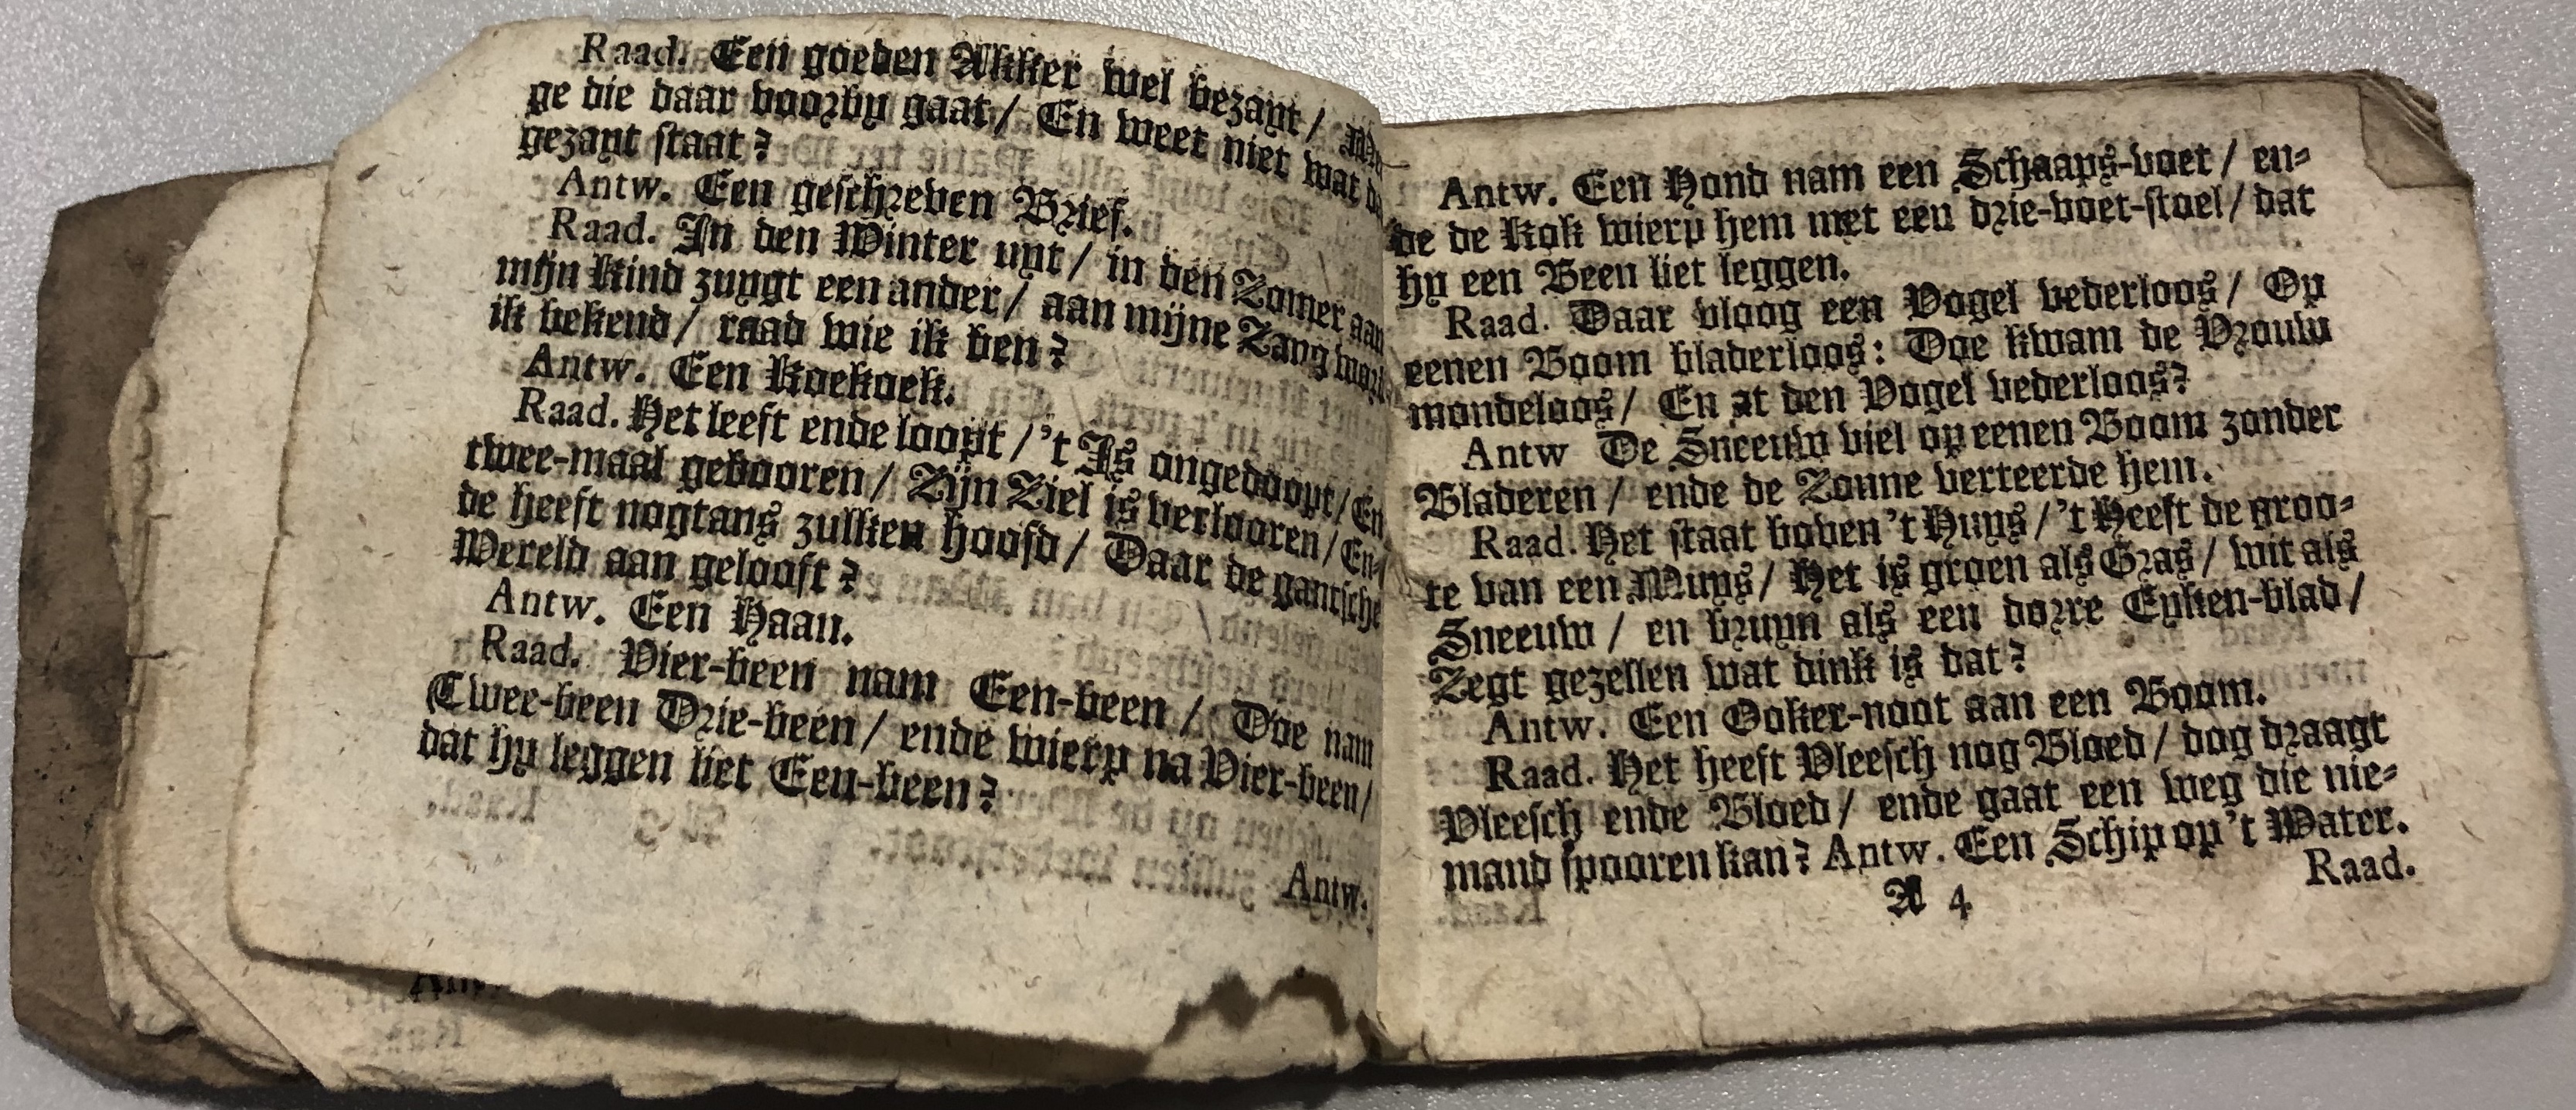 Raad. Een goeden Akker wel bezayt /
ge die daar voorby gaat / En weet niet wat
gezayt staat?
Antw. Een geschreven Brief.
Raad. In den Winter uyt / in den Zomer aan
mijn Kind zuygt een ander / aan mijne Zang word
ik bekend / raad wie ik ben?
Antw. Een Koekoek.
Raad. Het leeft ende loopt / 't Is ongedoopt / En
twee-maal gebooren / Zijn Ziel is verlooren / En-
de heeft nogtans zulken hoofd / Daar de gantsche
Wereld aan gelooft?
Antw. Een Haan.
Raad. Vier-been nam Een-been / Doe nam
Twee-been Drie-been / ende wierp na Vier-been /
dat hy leggen liet Een-been?
Antw.
Antw. Een Hond nam een Schaaps-voet / en-
de de Kok wierp hem met een drie-voet-stoel / dat
hy een Been liet leggen.
Raad. Daar vloog een Vogel vederloos / Op
eenen Boom bladerloos: Doe kwam de Vrouw
mondeloos / En at den Vogel vederloos?
Antw De Sneeuw viel op eenen Boom zonder
Bladeren / ende de Zonne verteerde hem.
Raad. Het staat boven 't Huys / 't Heeft de groo-
te van een Muys / Het is groen als Gras / wit als
Sneeuw / en bruyn als een dorre Eyken-blad /
Zegt gezellen wat dink is dat?
Antw. Een Ooker-noot aan een Boom.
Raad. Het heeft Vleesch nog Bloed / dog draagt
Vleesch ende Bloed / ende gaat een weg die nie-
mand spooren kan? Antw. Een Schip op 't Water.
A 4 Raad.